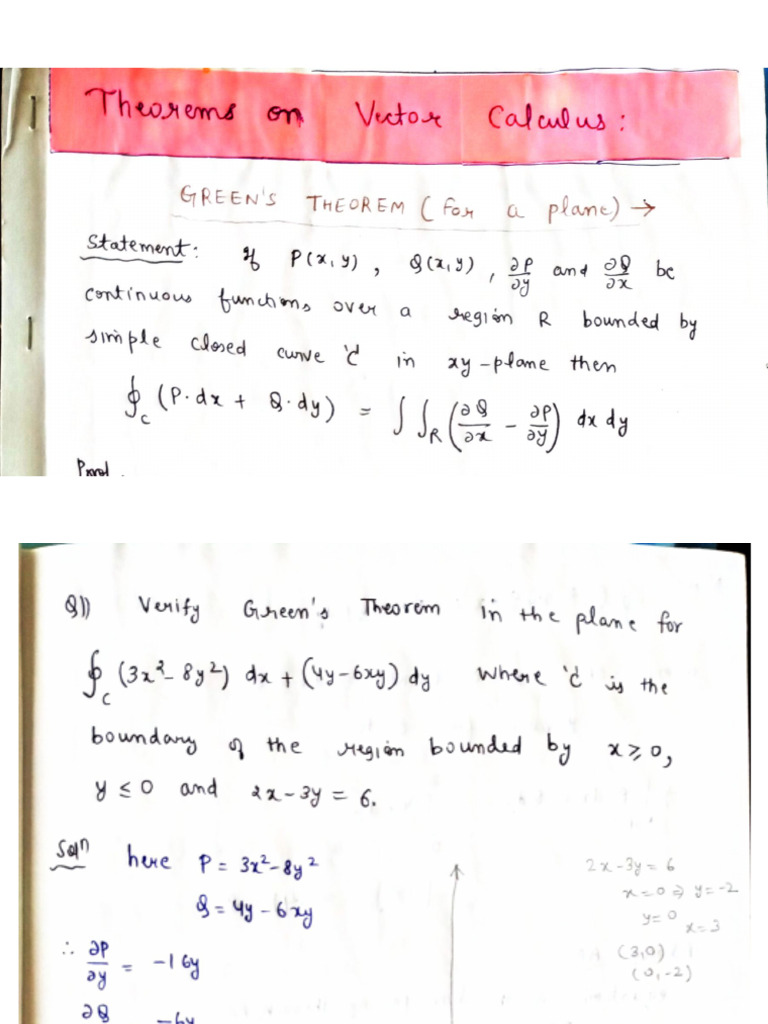 Theorems on Vector Calculus:
GREEN'S THEOREM (for a plane) →
Statement: If P(x,y), Q(x,y), ∂P/∂y and ∂Q/∂x be
continuous functions over a region R bounded by
simple closed curve 'c' in xy-plane then
∮_C (P.dx + Q.dy) = ∫∫_R (∂Q/∂x - ∂P/∂y) dx dy
Proof
Q1) Verify Green's Theorem in the plane for
∮_C (3x²-8y²) dx + (4y-6xy) dy where 'c' is the
boundary of the region bounded by x ≥ 0,
y ≤ 0 and 2x-3y = 6.
Solⁿ here P = 3x²-8y²
Q = 4y-6xy
∴ ∂P/∂y = -16y
∂Q -6y
2x-3y=6
x=0 ⇒ y=-2
y=0 x=3
(3,0)
(0,-2)